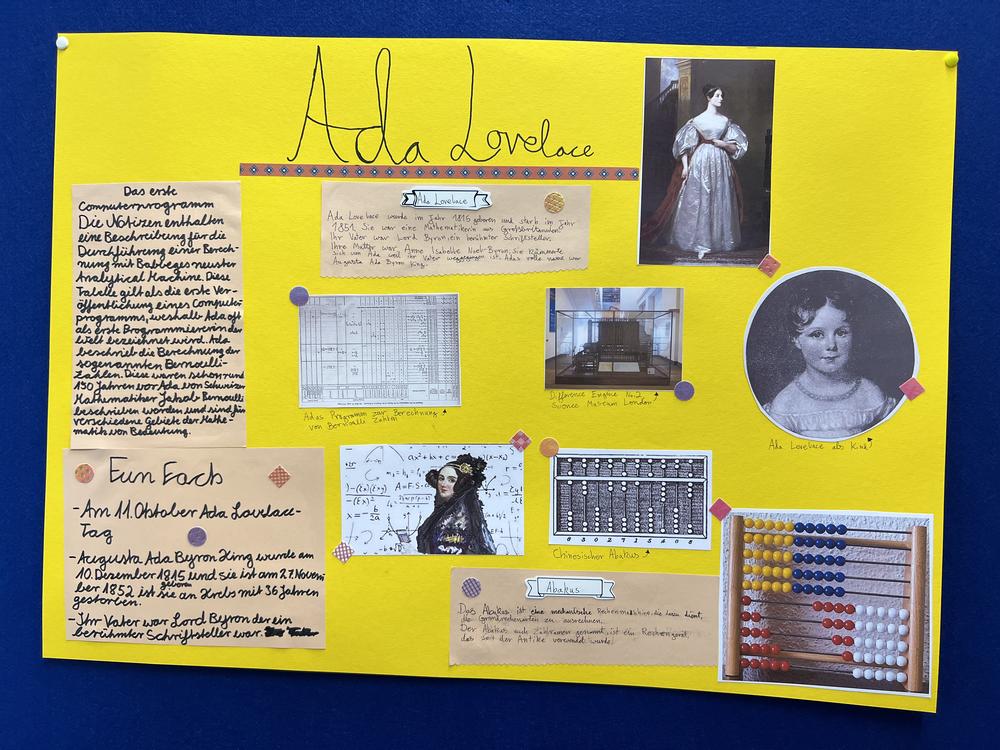 Ada Lovelace
Das erste
Computerprogramm
Die Notizen enthalten
eine Beschreibung für die
Durchführung einer Berech-
nung mit Babbages neuster
Analytical Machine. Diese
Tabelle gilt als die erste Ver-
öffentlichung eines Computer
programms, weshalb Ada oft
als erste Programmiererin der
Welt bezeichnet wird. Ada
beschrieb die Berechnung der
sogenannten Bernoulli-
Zahlen. Diese waren schon rund
130 Jahren vor Ada von Schweizer
Mathematiker Jakob Bernoulli
beschrieben worden und sind für
verschiedene Gebiete der Mathe-
matik von Bedeutung.
Ada Lovelace
Ada Lovelace wurde im Jahr 1815 geboren und starb im Jahr
1851. Sie war eine Mathematikerin aus Großbritannien.
Ihr Vater war Lord Byron, ein berühmter Schriftsteller.
Ihre Mutter war Anne Isabelle Noel-Byron, Sie kümmerte
sich um Ada weil ihr Vater weggegangen ist. Adas volle name war
Augusta Ada Byron King.
Adas Programm zur Berechnung
von Bernoulli Zahlen
Difference Engine No.2
Science Museum London
Ada Lovelace als Kind
Fun Fach
-Am 11. Oktober Ada Lovelace-
Tag
-Augusta Ada Byron King wurde am
10. Dezember 1815 geboren und sie ist am 27. Novem
ber 1852 ist sie an Krebs mit 36 Jahren
gestorben.
-Ihr Vater war Lord Byron der ein
berühmter Schriftsteller war.
A=F·S·
x=-b/2a
Chinesischer Abakus
0 3 0 2 7 1 5 4 0 8
Abakus
Das Abakus, ist eine mechanische Rechenmaschine, die dazu dient,
die Grundrechenarten zu ausrechnen.
Der Abakus auch Zählrahmen genannt, ist ein Rechengerät,
das seit der Antike verwendet wurde.